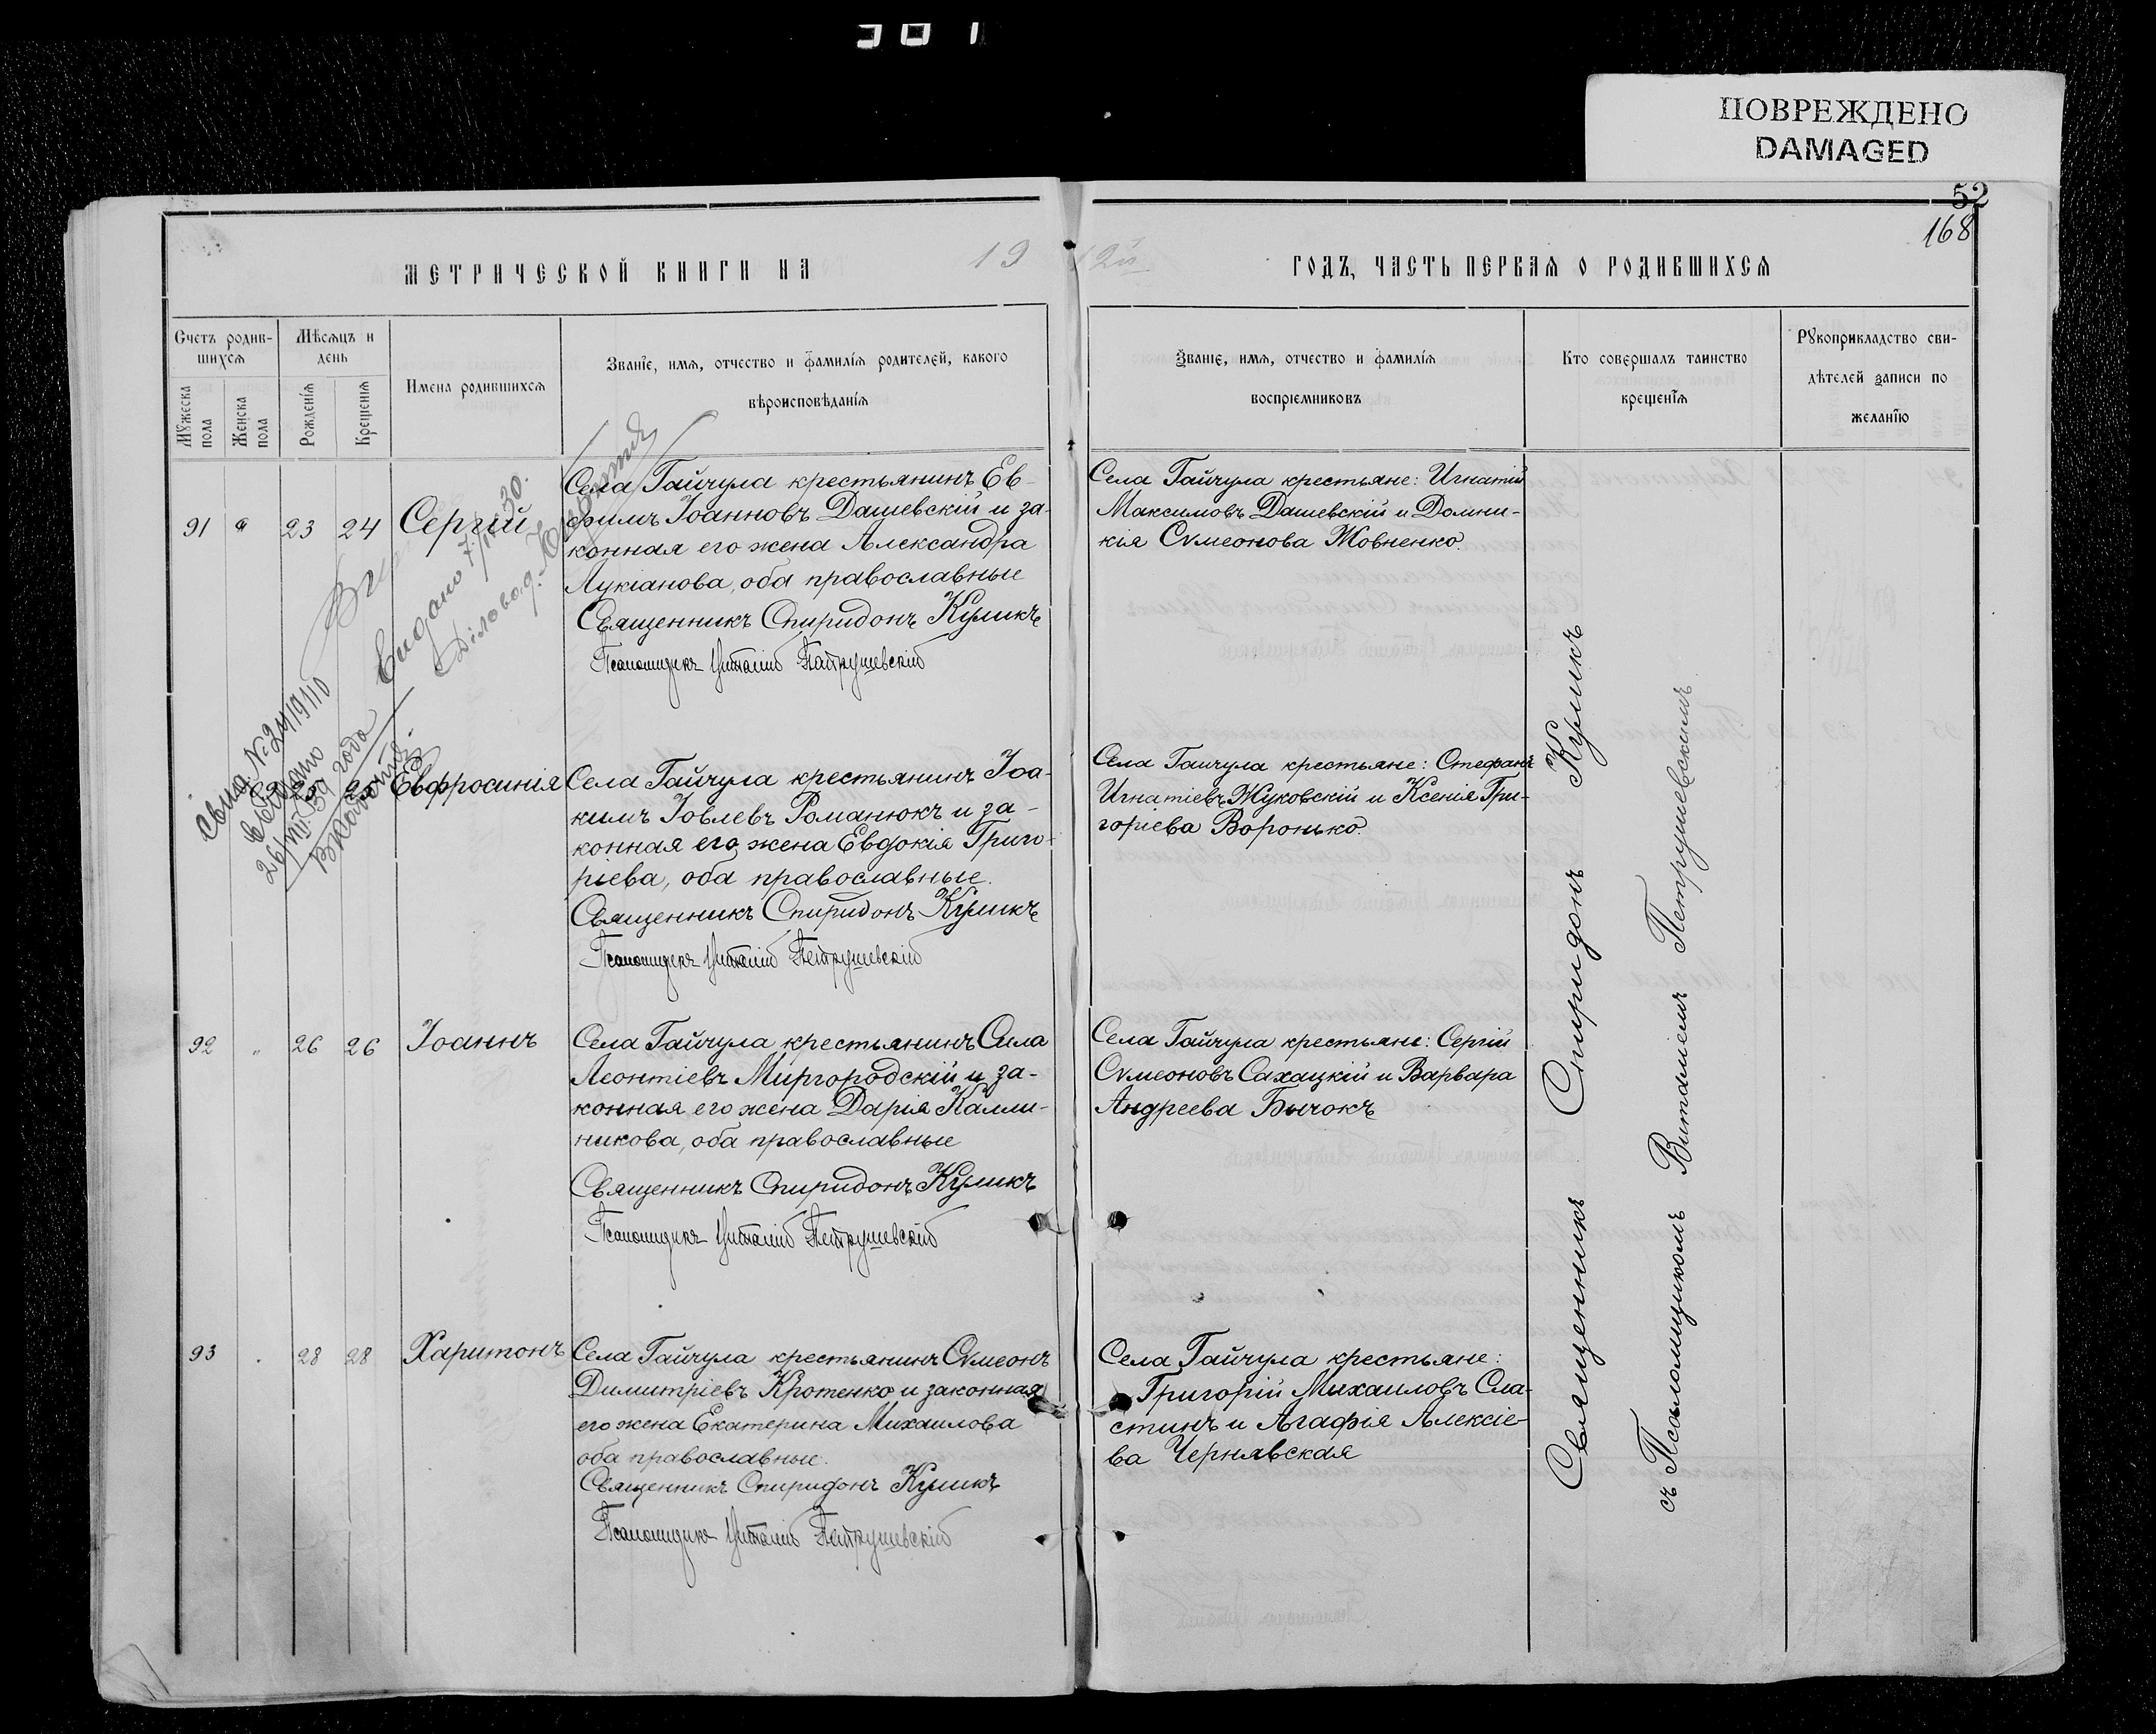 ПОВРЕЖДЕНО
DAMAGED
52
168
МЕТРИЧЕСКОЙ КНИГИ НА 19
12й ГОДЪ, ЧАСТЬ ПЕРВАЯ О РОДИВШИХСЯ
Счетъ родив-
шихся
Мужеска
пола
Женска
пола
Мѣсяцъ и
день
Рожденія
Крещенія
Имена родившихся
Званіе, имя, отчество и фамилія родителей, какого
вѣроисповѣданія
Званіе, имя, отчество и фамилія
воспріемниковъ
Кто совершалъ таинство
крещенія
Рукоприкладство сви-
дѣтелей записи по
желанію
91 23 24 Сергій
Села Гайчула крестьянинъ Ев-
фимъ Іоанновъ Дашевскій и за-
конная его жена Александра
Лукіанова, оба православные
Священникъ Спиридонъ Куликъ
Псаломщикъ Виталій Петрушевскій
Села Гайчула крестьяне: Игнатій
Максимовъ Дашевскій и Домни-
кія Сѵмеонова Жовненко.
Видано
Діловод.
26/VII-39 года
25 Евфросинія
Села Гайчула крестьянинъ Іоа-
кимъ Іовлевъ Романюкъ и за-
конная его жена Евдокія Григо-
ріева, оба православные.
Священникъ Спиридонъ Куликъ
Псаломщикъ Виталій Петрушевскій
Села Гайчула крестьяне: Стефанъ
Игнатіевъ Жуковскій и Ксенія Гри-
горіева Воронько.
92 „ 26 26 Іоаннъ
Села Гайчула крестьянинъ Сила
Леонтіевъ Миргородскій и за-
конная его жена Дарія Калли-
никова, оба православные
Священникъ Спиридонъ Куликъ
Псаломщикъ Виталій Петрушевскій
Села Гайчула крестьяне: Сергій
Сѵмеоновъ Сахацкій и Варвара
Андреева Бычокъ
93 28 28 Харитонъ
Села Гайчула крестьянинъ Сѵмеонъ
Димитріевъ Кротенко и законная
его жена Екатерина Михаилова
оба православные.
Священникъ Спиридонъ Куликъ
Псаломщикъ Виталій Петрушевскій
Села Гайчула крестьяне:
Григорій Михаиловъ Сла-
стинъ и Агафія Алексіе-
ва Чернявская
Священникъ Спиридонъ Куликъ
съ Псаломщикомъ Виталіемъ Петрушевскимъ